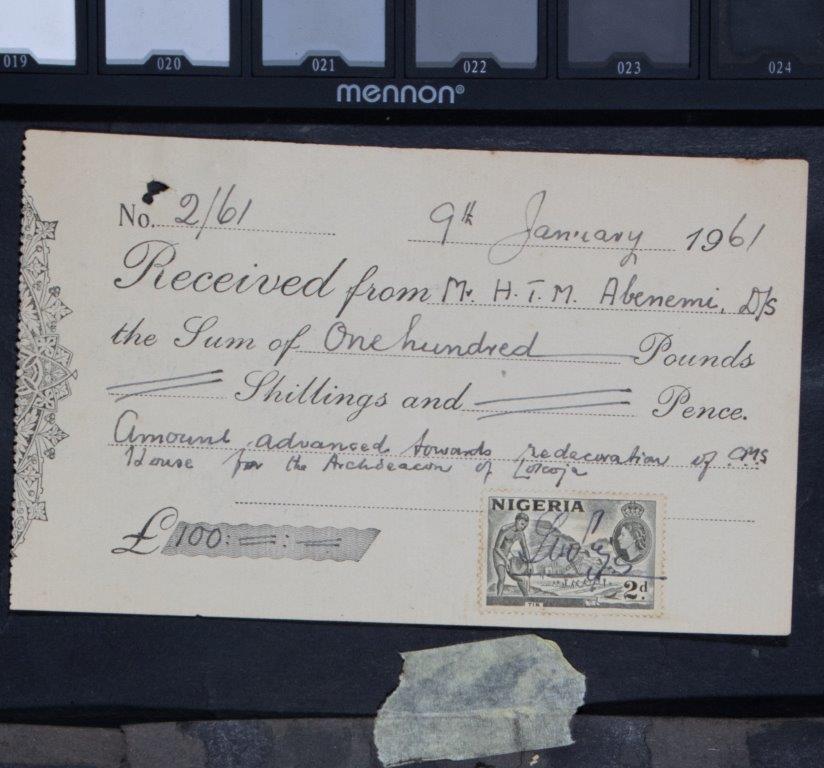 019 020 021 022 023 024
mennon®
No. 2/61
9th January 1961
Received from Mr. H.T.M. Abenemi, D/s
the Sum of One hundred Pounds
Shillings and Pence.
Amount advanced towards redecoration of CMS
House for the Archdeacon of Lokoja
£100:=:=
NIGERIA
TIN
2d.